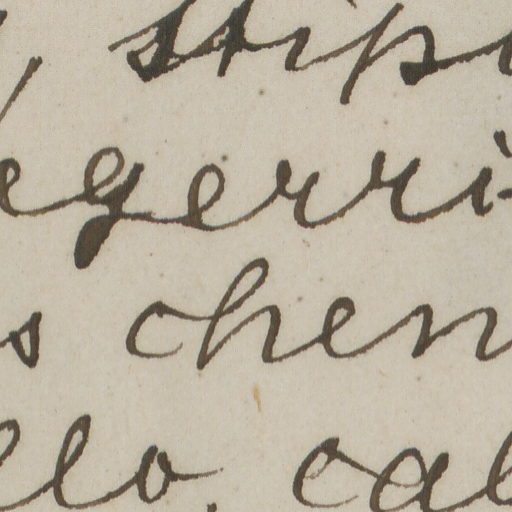 , stip
egerri-
s chen
llo, cal